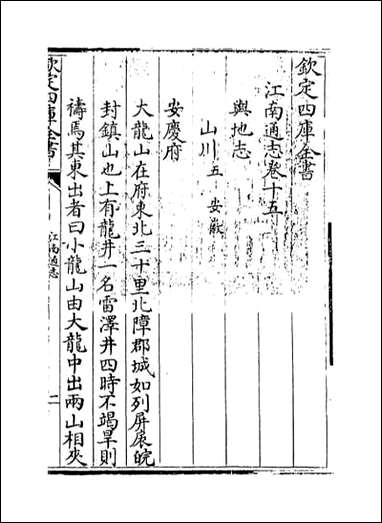 欽定四庫全書
江南通志卷十五
輿地志
山川五 安徽
安慶府
大龍山在府東北三十里北障郡城如列屏扆皖
封鎮山也上有龍井一名雷澤井四時不竭旱則
禱焉其東出者曰小龍山由大龍中出兩山相夾
欽定四庫全書
江南通志